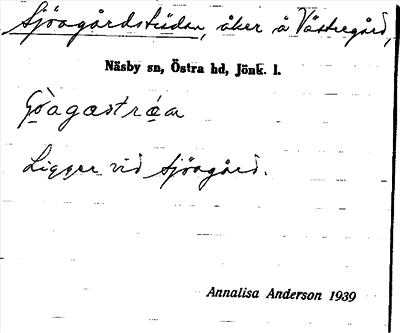 Sjöagårdstädan, åker å Västregård,
Näsby sn, Östra hd, Jönk. l.
Ligger vid Sjöagård.
Annalisa Anderson 1939